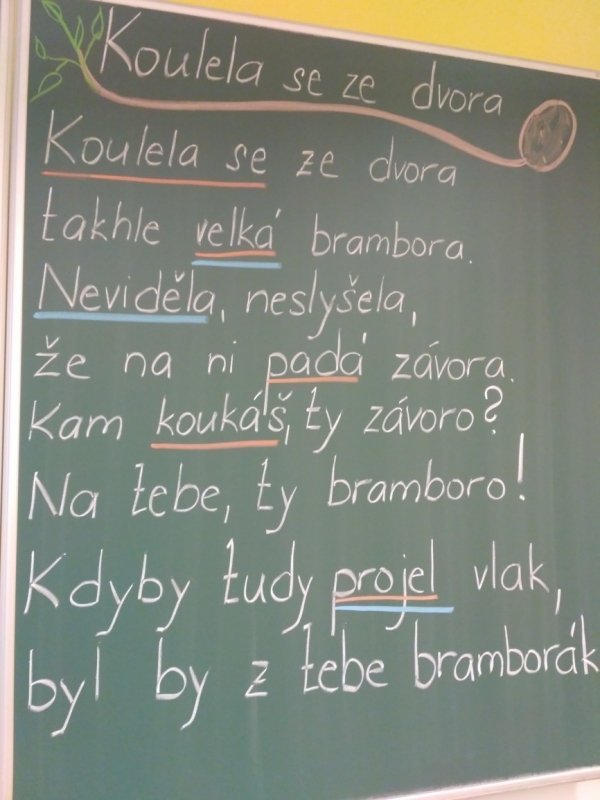 Koulela se ze dvora
Koulela se ze dvora
takhle velká brambora.
Neviděla, neslyšela,
že na ni padá závora.
Kam koukáš, ty závoro?
Na tebe, ty bramboro!
Kdyby tudy projel vlak,
byl by z tebe bramborák